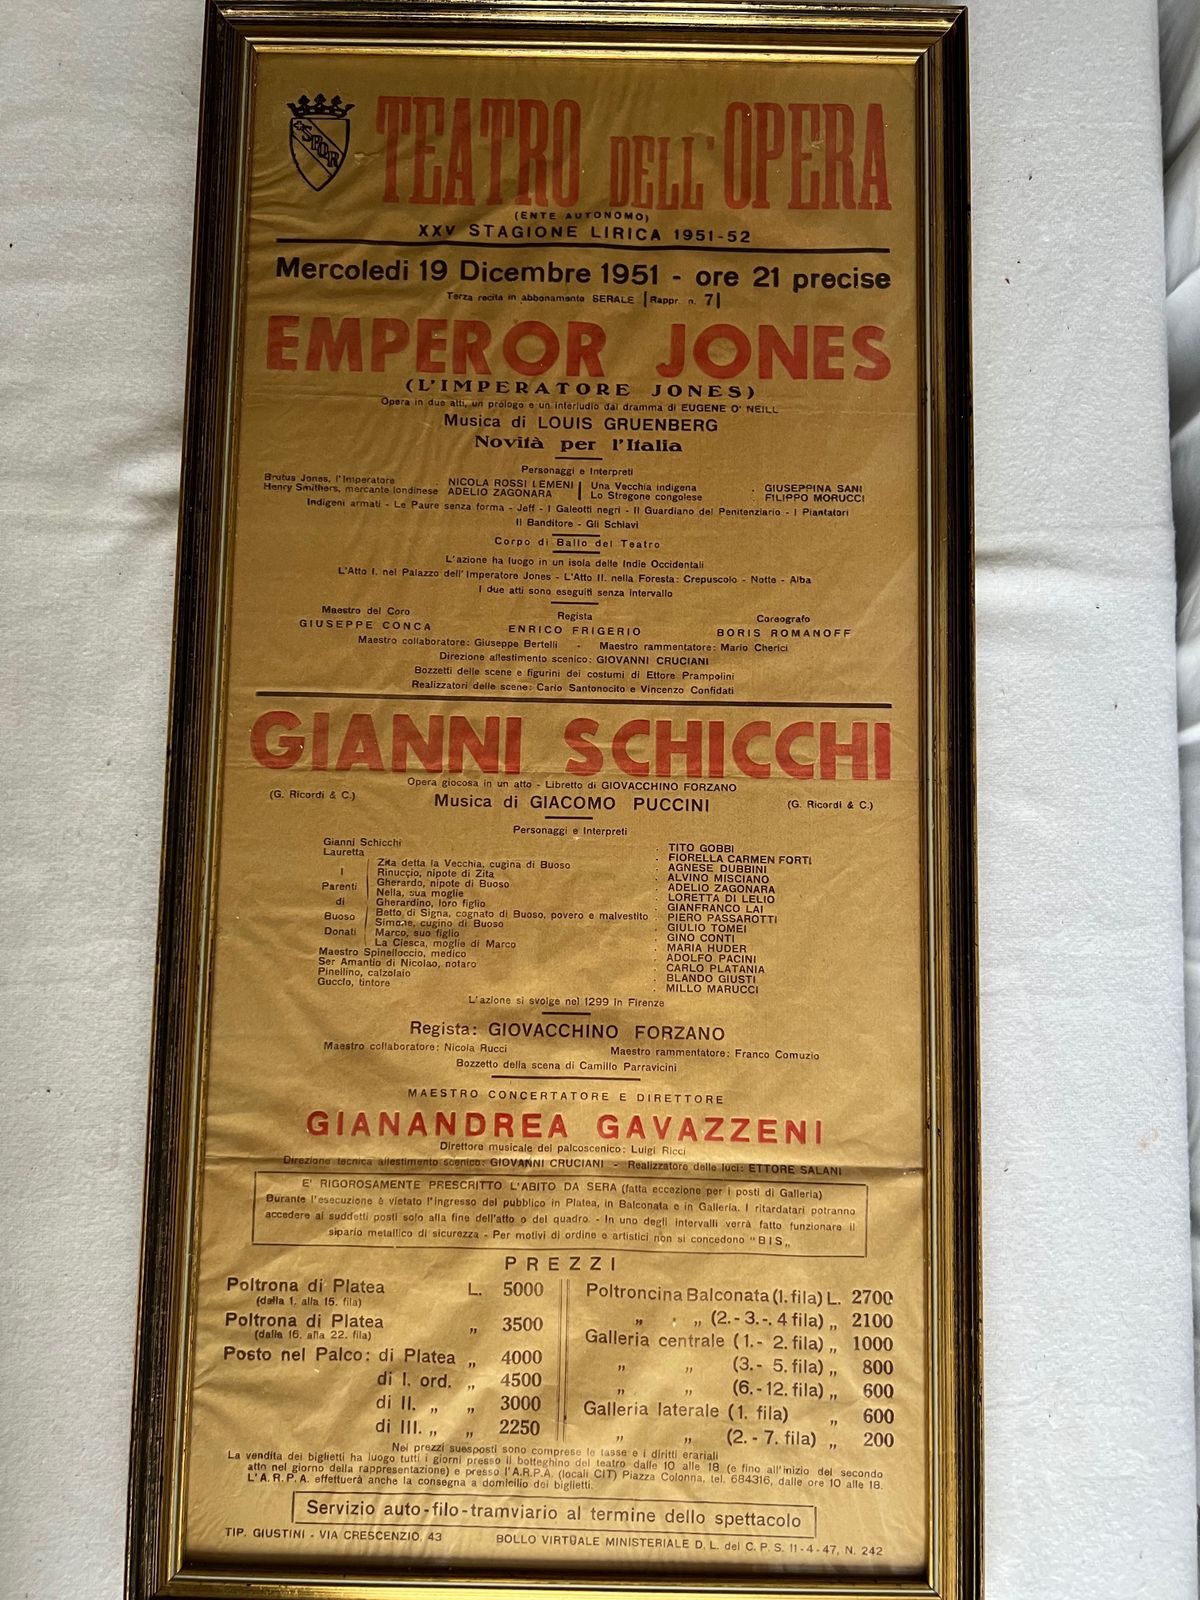 SPQR
TEATRO DELL'OPERA
(ENTE AUTONOMO)
XXV STAGIONE LIRICA 1951-52
Mercoledi 19 Dicembre 1951 - ore 21 precise
Terza recita in abbonamento SERALE (Rappr. n. 7)
EMPEROR JONES
(L'IMPERATORE JONES)
Opera in due atti, un prologo e un interludio dal dramma di EUGENE O' NEILL
Musica di LOUIS GRUENBERG
Novità per l'Italia
Personaggi e Interpreti
Brutus Jones, l'Imperatore . NICOLA ROSSI LEMENI | Una Vecchia indigena . GIUSEPPINA SANI
Henry Smithers, mercante londinese ADELIO ZAGONARA | Lo Stregone congolese . FILIPPO MORUCCI
Indigeni armati - Le Paure senza forma - Jeff - I Galeotti negri - Il Guardiano del Penitenziario - I Piantatori
Il Banditore - Gli Schiavi
Corpo di Ballo del Teatro
L'azione ha luogo in un isola delle Indie Occidentali
L'Atto I. nel Palazzo dell'Imperatore Jones - L'Atto II. nella Foresta: Crepuscolo - Notte - Alba
I due atti sono eseguiti senza intervallo
Maestro del Coro Regista Coreografo
GIUSEPPE CONCA ENRICO FRIGERIO BORIS ROMANOFF
Maestro collaboratore: Giuseppe Bertelli - Maestro rammentatore: Mario Cherici
Direzione allestimento scenico: GIOVANNI CRUCIANI
Bozzetti delle scene e figurini dei costumi di Ettore Prampolini
Realizzatori delle scene: Carlo Santonocito e Vincenzo Confidati
GIANNI SCHICCHI
Opera giocosa in un atto - Libretto di GIOVACCHINO FORZANO
(G. Ricordi & C.) Musica di GIACOMO PUCCINI (G. Ricordi & C.)
Personaggi e Interpreti
Gianni Schicchi . TITO GOBBI
Lauretta . FIORELLA CARMEN FORTI
Zita detta la Vecchia, cugina di Buoso . AGNESE DUBBINI
I Rinuccio, nipote di Zita . ALVINO MISCIANO
Parenti Gherardo, nipote di Buoso . ADELIO ZAGONARA
Nella, sua moglie . LORETTA DI LELIO
di Gherardino, loro figlio . GIANFRANCO LAI
Betto di Signa, cognato di Buoso, povero e malvestito . PIERO PASSAROTTI
Buoso Simone, cugino di Buoso . GIULIO TOMEI
Donati Marco, suo figlio . GINO CONTI
La Ciesca, moglie di Marco . MARIA HUDER
Maestro Spinelloccio, medico . ADOLFO PACINI
Ser Amantio di Nicolao, notaro . CARLO PLATANIA
Pinellino, calzolaio . BLANDO GIUSTI
Guccio, tintore . MILLO MARUCCI
L'azione si svolge nel 1299 in Firenze
Regista: GIOVACCHINO FORZANO
Maestro collaboratore: Nicola Rucci Maestro rammentatore: Franco Comuzio
Bozzetto della scena di Camillo Parravicini
MAESTRO CONCERTATORE E DIRETTORE
GIANANDREA GAVAZZENI
Direttore musicale del palcoscenico: Luigi Ricci
Direzione tecnica allestimento scenico: GIOVANNI CRUCIANI - Realizzatore delle luci: ETTORE SALANI
E' RIGOROSAMENTE PRESCRITTO L'ABITO DA SERA (fatta eccezione per i posti di Galleria)
Durante l'esecuzione è vietato l'ingresso del pubblico in Platea, in Balconata e in Galleria. I ritardatari potranno
accedere ai suddetti posti solo alla fine dell'atto o del quadro - In uno degli intervalli verrà fatto funzionare il
sipario metallico di sicurezza - Per motivi di ordine e artistici non si concedono "BIS„
PREZZI
Poltrona di Platea L. 5000
(dalla 1. alla 15. fila)
Poltrona di Platea „ 3500
(dalla 16. alla 22. fila)
Posto nel Palco: di Platea „ 4000
di I. ord. „ 4500
di II. „ „ 3000
di III. „ „ 2250
Poltroncina Balconata (1. fila) L. 2700
„ „ (2. - 3. -. 4 fila) „ 2100
Galleria centrale (1. - 2. fila) „ 1000
„ „ (3. - 5. fila) „ 800
„ „ (6. - 12. fila) „ 600
Galleria laterale (1. fila) „ 600
„ „ (2. - 7. fila) „ 200
Nei prezzi suesposti sono comprese le tasse e i diritti erariali
La vendita dei biglietti ha luogo tutti i giorni presso il botteghino del teatro dalle 10 alle 18 (e fino all'inizio del secondo
atto nel giorno della rappresentazione) e presso l'A.R.P.A. (locali CIT) Piazza Colonna, tel. 684316, dalle ore 10 alle 18.
L'A.R.P.A. effettuerà anche la consegna a domicilio dei biglietti.
Servizio auto-filo-tramviario al termine dello spettacolo
TIP. GIUSTINI - VIA CRESCENZIO, 43 BOLLO VIRTUALE MINISTERIALE D. L. del C. P. S. 11-4-47, N. 242